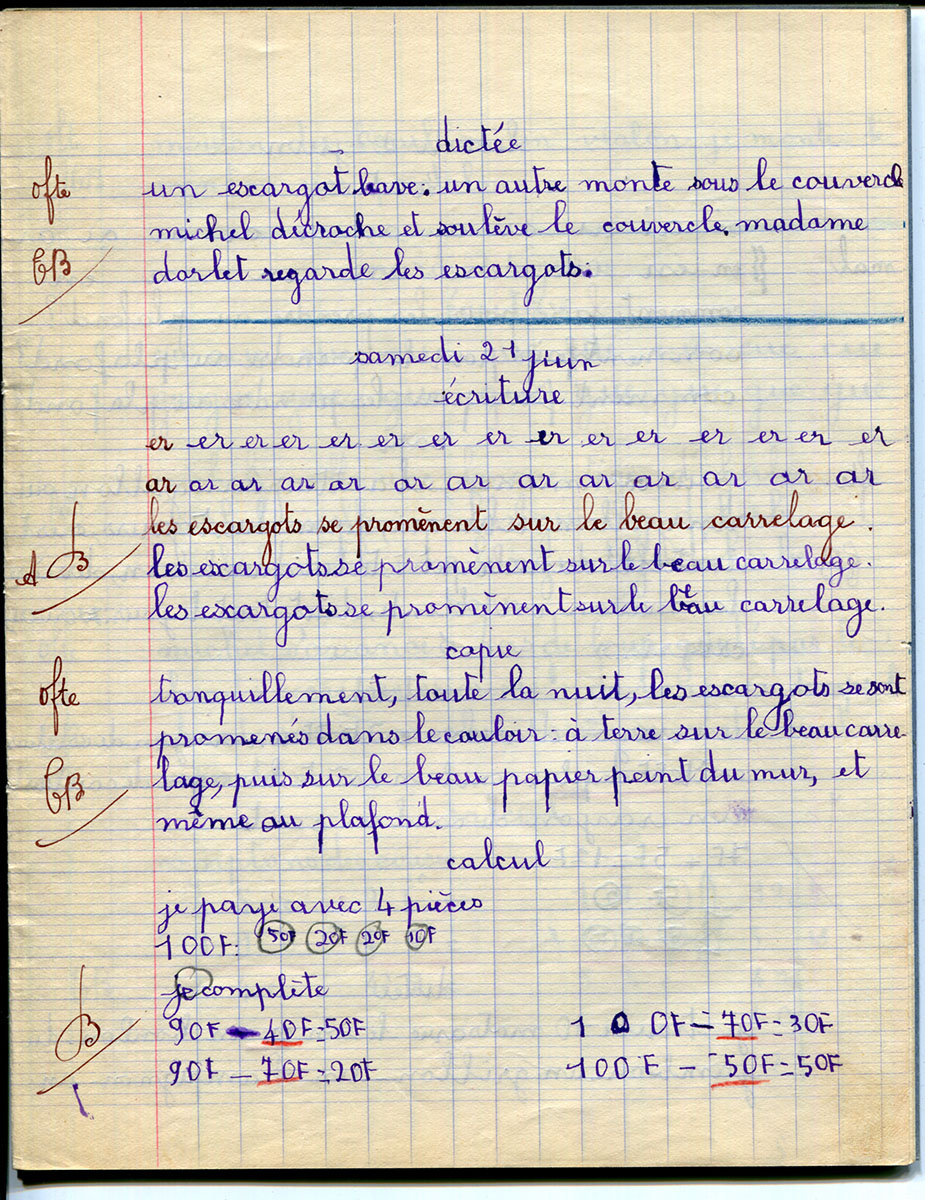 dictée
0fte un escargot bave. un autre monte sous le couvercle
michel décroche et soulève le couvercle. madame
TB dorlet regarde les escargots.
samedi 21 juin
écriture
er er er er er er er er er er er er er er er
ar ar ar ar ar ar ar ar ar ar ar ar ar
les escargots se promènent sur le beau carrelage.
AB les escargots se promènent sur le beau carrelage.
les escargots se promènent sur le beau carrelage.
copie
0fte tranquillement, toute la nuit, les escargots se sont
promenés dans le couloir : à terre sur le beau carre-
TB lage, puis sur le beau papier peint du mur, et
même au plafond.
calcul
je paye avec 4 pièces
100F: 50F 20F 20F 10F
je complète
B 90F - 40F = 50F 100F - 70F = 30F
90F - 70F = 20F 100F - 50F = 50F